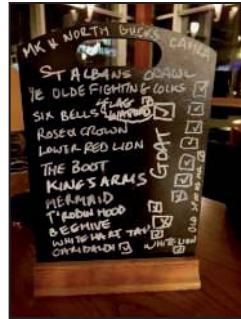 MK & NORTH BUCKS CAMRA
ST ALBANS CRAWL
YE OLDE FIGHTING COCKS
FLAG
SIX BELLS
ROSE & CROWN
LOWER RED LION
GOAT
THE BOOT
KINGS ARMS
MERMAID
T'ROBIN HOOD
BEEHIVE
WHITE HART TAP
GARIBALDI
WHITE LION